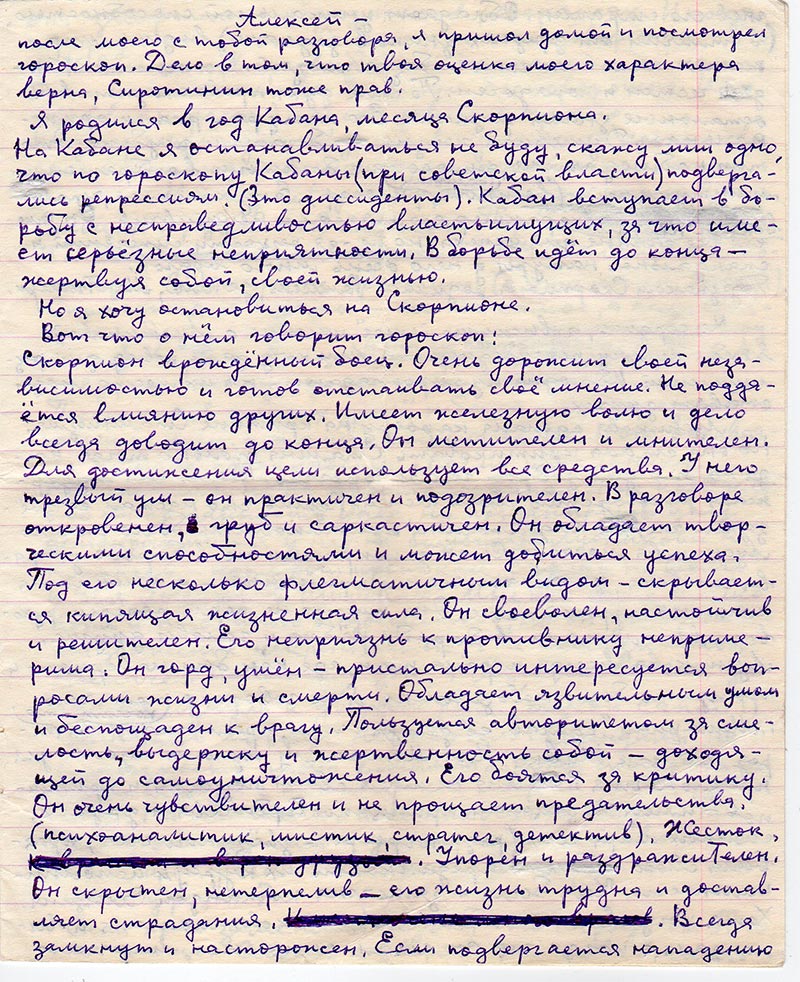 Алексей –
после моего с тобой разговора, я пришол домой и посмотрел
гороскоп. Дело в том, что твоя оценка моего характера
верна, Сиротинин тоже прав.
Я родился в год Кабана, месяца Скорпиона.
На Кабане я останавливаться не буду, скажу лиш одно,
что по гороскопу Кабаны (при советской власти) подверга-
лись репрессиям. (Это диссиденты). Кабан вступает в бо-
рьбу с несправедливостью властьимущих, за что име-
ет серьёзные неприятности. В борьбе идёт до конца –
жертвуя собой, своей жизнью.
Но я хочу остановиться на Скорпионе.
Вот что о нём говорит гороскоп:
Скорпион врождённый боец. Очень дорожит своей неза-
висимостью и готов отстаивать своё мнение. Не подда-
ётся влиянию других. Имеет железную волю и дело
всегда доводит до конца. Он мстителен и мнителен.
Для достижения цели использует все средства. У него
трезвый ум – он практичен и подозрителен. В разговоре
откровенен, груб и саркастичен. Он обладает твор-
ческими способностями и может добиться успеха.
Под его несколько флегматичным видом – скрывает-
ся кипящая жизненная сила. Он своеволен, настойчив
и решителен. Его неприязнь к противнику неприме-
рима. Он горд, умён – пристально интересуется воп-
росами жизни и смерти. Обладает язвительным умом
и беспощаден к врагу. Пользуется авторитетом за сме-
лость, выдержку и жертвенность собой – доходя-
щей до самоуничтожения. Его боятся за критику.
Он очень чувствителен и не прощает предательства.
(психоаналитик, мистик, стратег, детектив). Жесток,
. Упорен и раздражителен.
Он скрытен, нетерпелив – его жизнь трудна и достав-
ляет страдания. . Всегда
замкнут и насторожен. Если подвергается нападению